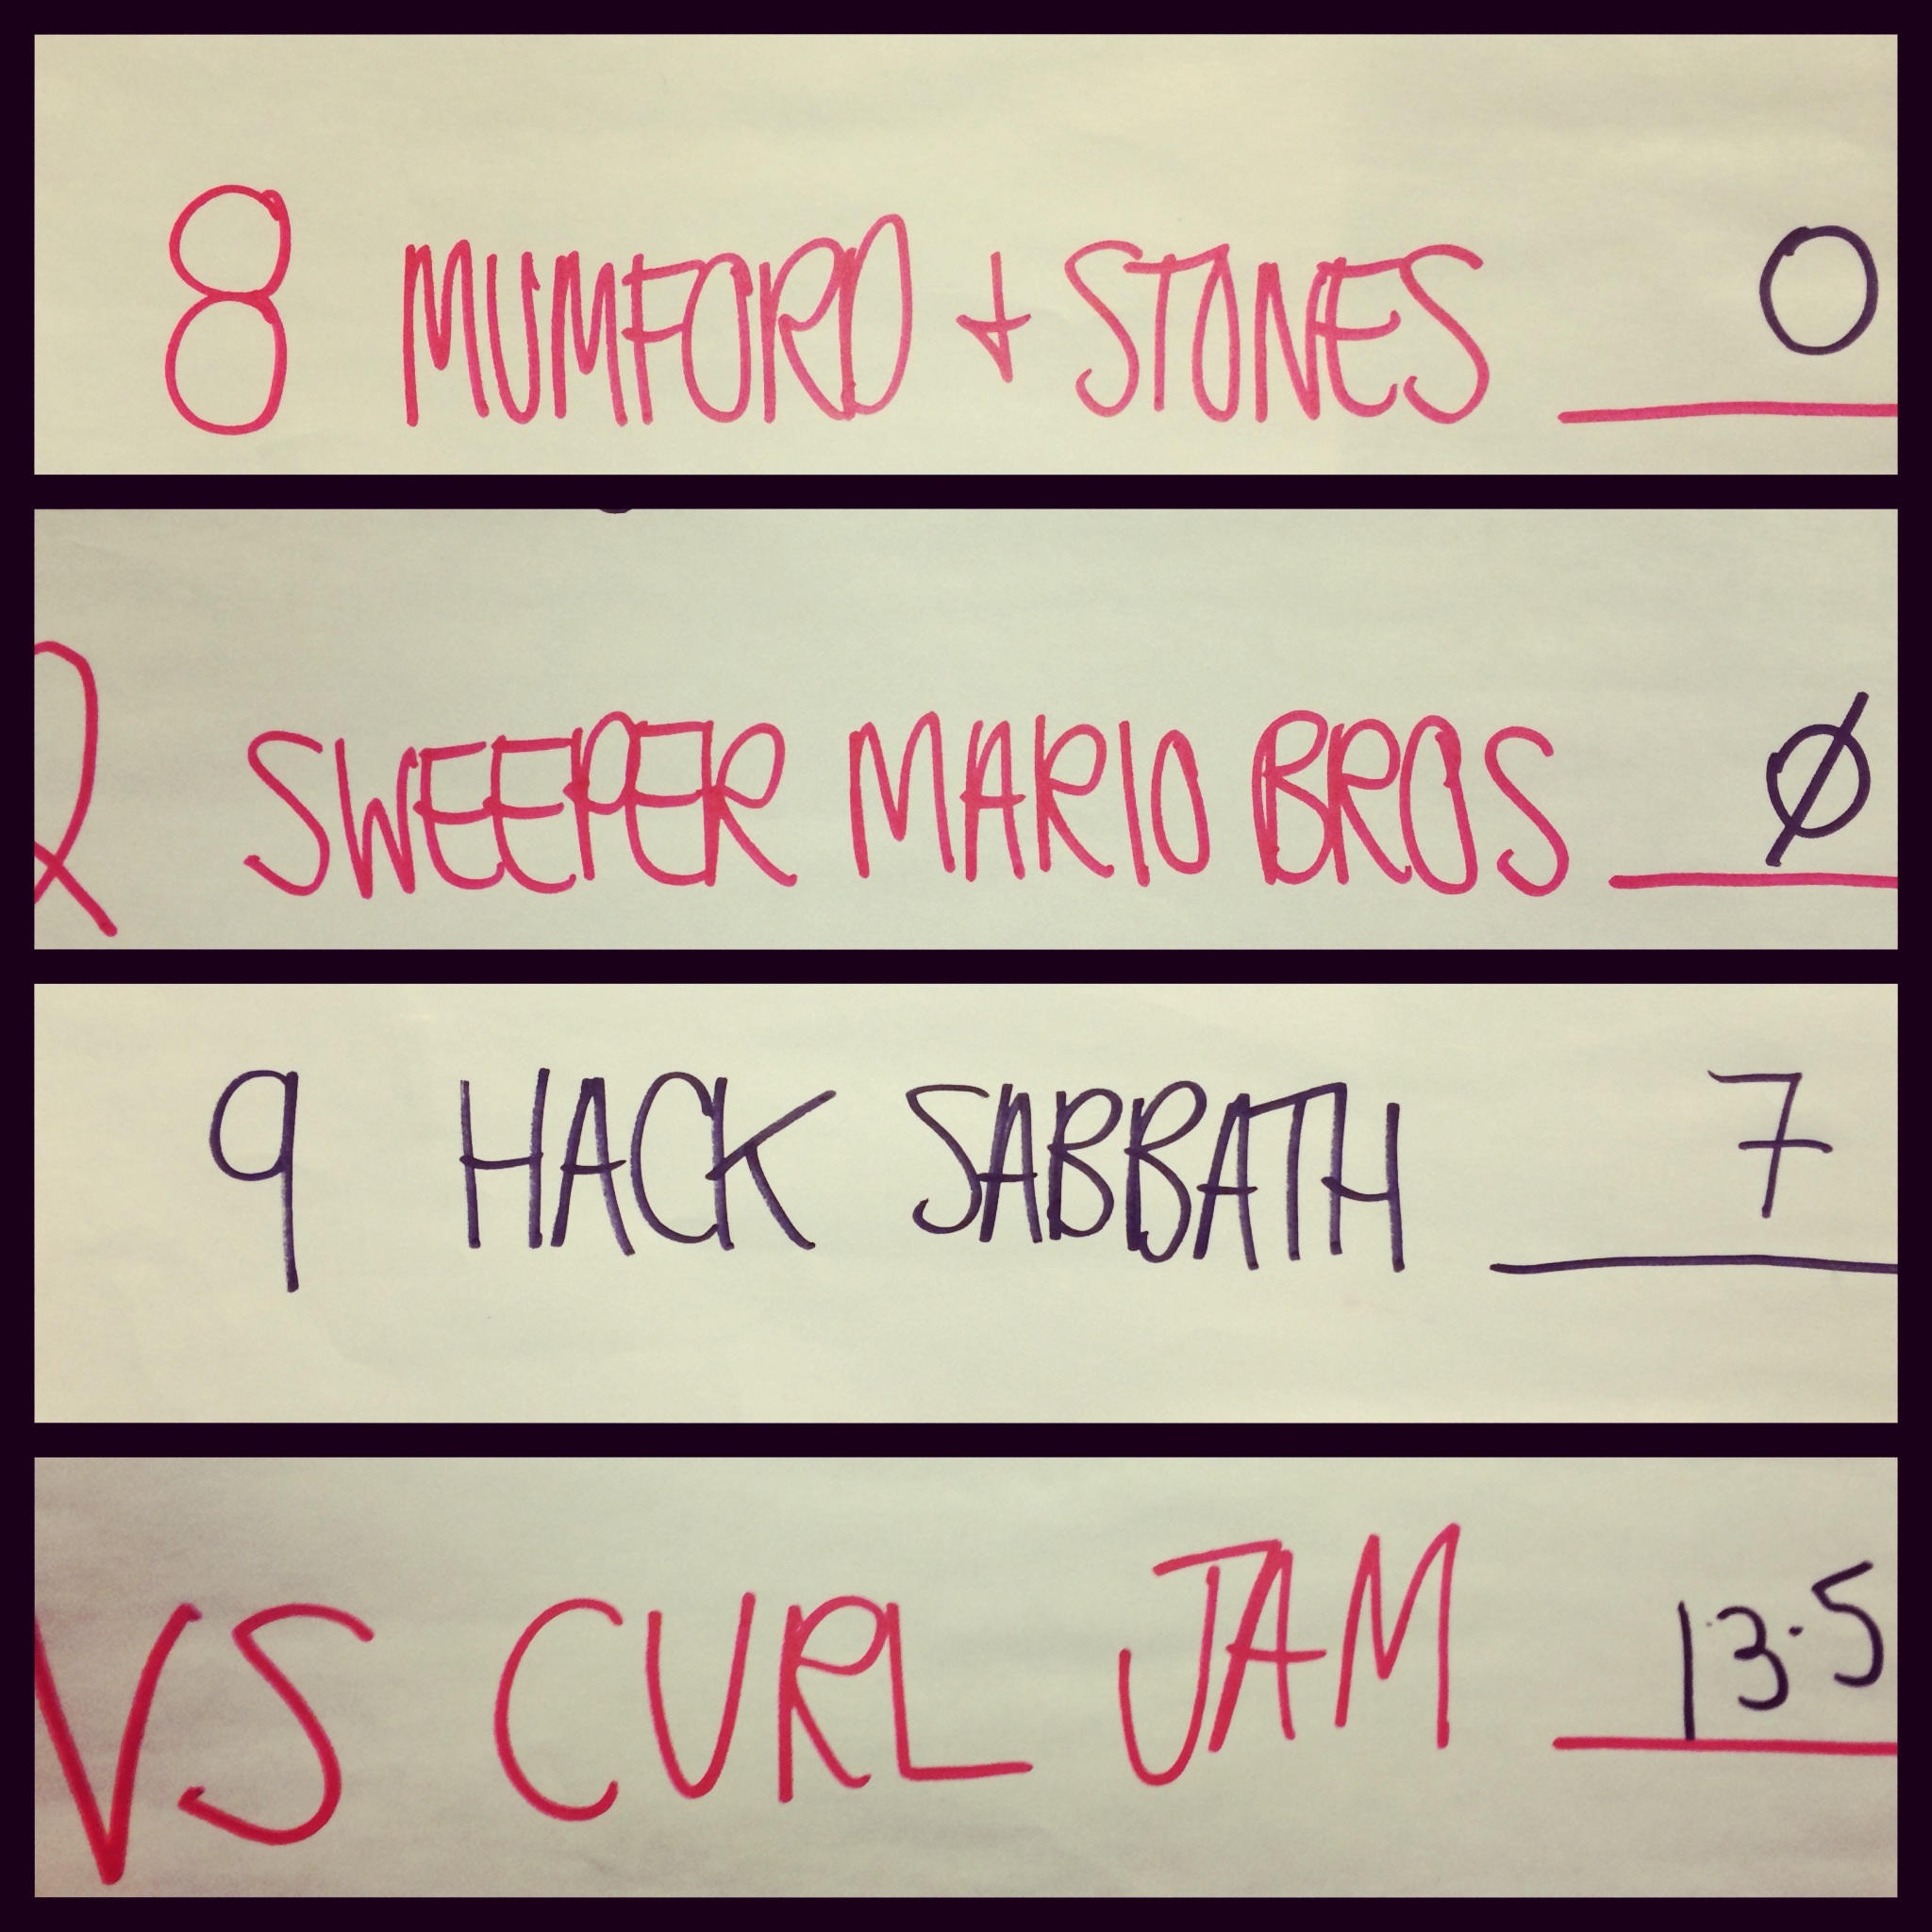 8 MUMFORD + STONES 0
2 SWEEPER MARIO BROS Ø
9 HACK SABBATH 7
VS CURL JAM 13.5